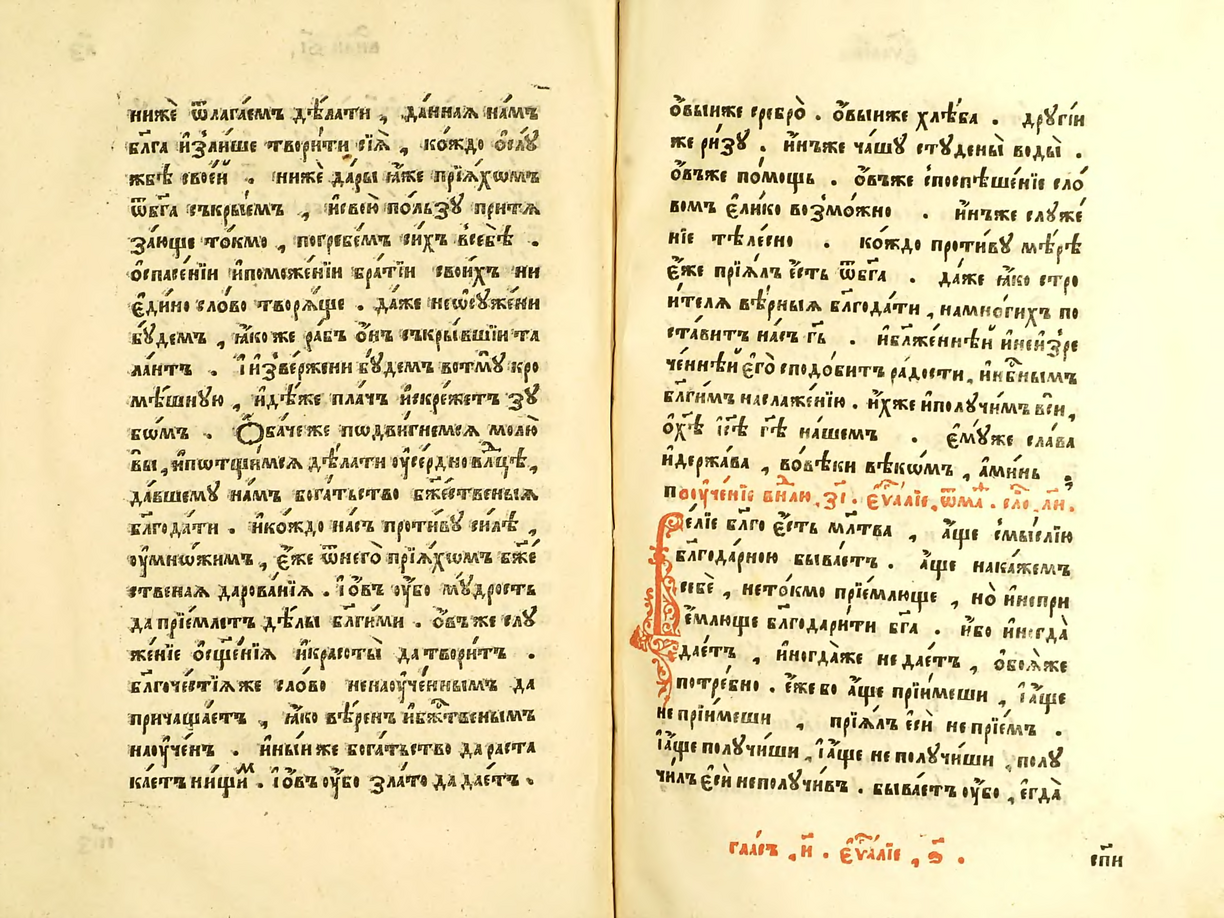 нижѐ ѿлага́емъ дѣ́лати , да́нная на́мъ
бл҃га и҆зли́ше твори́ти сїѧ̀ , ко́ждо ѻ҆слꙋ́
жбѣ свое́й . нижѐ да́ры ꙗ҆́же прїѧ́хѡмъ
ѿбг҃а съкры́емъ , и҆свою̀ по́льзꙋ притѧ
за́юще то́кмо , погребе́мъ си́хъ всебѣ̀ .
ѻ҆спасе́нїи и҆поможе́нїи бра́тїи свои́хъ ни
є҆ди́но сло́во творѧ́ще . да́же неѡ҆сꙋжени
бꙋ́демъ , ꙗ҆́коже ра́бъ ѻ҆́нъ съкры́вшїи та
ла́нтъ . і҆и҆зве́ржени бꙋ́демъ вотмꙋ̀ кро
мѣ́шнꙋю , и҆дѣ́же пла́чъ и҆скре́жетъ зꙋ
бѡ́мъ . Ѻ҆ба́чеже пѡдви́гнемсѧ молю̀
вы̀ , и҆пѡтщи́мсѧ дѣ́лати ᲂу҆се́рдно влⷣцѣ ,
да́вшемꙋ на́мъ бога́тьство бж҃е́ственыѧ
бл҃года́ти . и҆ко́ждо на́съ проти́вꙋ си́лѣ ,
ᲂу҆мно́жимъ , є҆́же ѿнего̀ прїѧ́хѡмъ бж҃е́
ственаѧ дарова́нїѧ . і҆ѻ҆́въ ᲂу҆́бо мꙋ́дрость
да прїе́млетъ дѣ́лы бл҃ги́ми . ѻ҆́въже слꙋ
же́нїе ѻ҆сщ҃е́нїѧ и҆красоты̀ да твори́тъ .
бл҃гоче́стїѧже сло́во ненаᲂу҆че́ннымъ да
причаща́етъ , ꙗ҆́ко вѣ́ренъ и҆бж҃тⷭвенымъ
наᲂу҆че́нъ . и҆ны́иже бога́тьство да раста
ка́етъ ни́щиⷨ . і҆ѻ҆́въ ᲂу҆́бо зла́то да дае́тъ .
ѻ҆́выиже сребро̀ . ѻ҆́выиже хлѣ́ба . дрꙋгі́и
же ри́зꙋ . и҆́нъже ча́шꙋ стꙋдены̀ воды̀ .
ѻ҆́въже по́мощь . ѻ҆́въже споспѣше́нїе сло́
вомъ є҆ли́ко возмо́жно . и҆́нъже слꙋже́
нїе тѣле́сно . ко́ждо проти́вꙋ мѣ́рѣ
є҆́же прїѧ́лъ є҆́сть ѿбг҃а . да́же ꙗ҆́ко стро
и́телѧ вѣ́рныѧ бл҃года́ти , намно́гихъ по
ста́витъ на́съ гь҃ . и҆бл҃же́ннѣй и҆неи҆зре
че́ннѣй є҆го̀ сподо́битъ ра́дости , и҆нбⷭ҇нымъ
бл҃ги́мъ наслажде́нїю . и҆́хже и҆полꙋчи́мъ вси̑ ,
ѻ҆хⷭ҇ѣ і҆с҃ѣ гд҃ѣ на́шемъ . є҆мꙋ́же сла́ва
и҆держа́ва , во́вѣки вѣкѡ́мъ , а҆ми́нь .
поᲂу҆че́нїе внⷣлю , з҃і . є҆ѵⷢ҇а́лїе , ѿмаⷴ . сло , л҃и .
Ве́лїе бл҃го є҆́сть мл҃тва , а҆́ще смы́слїю
бл҃года́рною быва́етъ . а҆́ще нака́жемъ
себѐ , нето́кмо прїе́млюще , но̀ и҆непри
е́млюще бл҃годари́ти бг҃а . и҆́бо и҆ногда̀
дае́тъ , и҆ногда́же не дае́тъ , ѻ҆боѧ́же
потре́бно . є҆́жебо а҆́ще прїи́меши , і҆а҆́ще
не прїи́меши , прїѧ́лъ є҆сѝ не прїе́мъ .
і҆а҆́ще полꙋ́чиши , і҆а҆́ще не полꙋ́чиши , полꙋ
чи́лъ є҆сѝ неполꙋчи́въ . быва́етъ ᲂу҆́бо , є҆гда̀
гла́съ , и҃ . є҆ѵⷢ҇а́лїе , ѳ҃ .
сп҃и